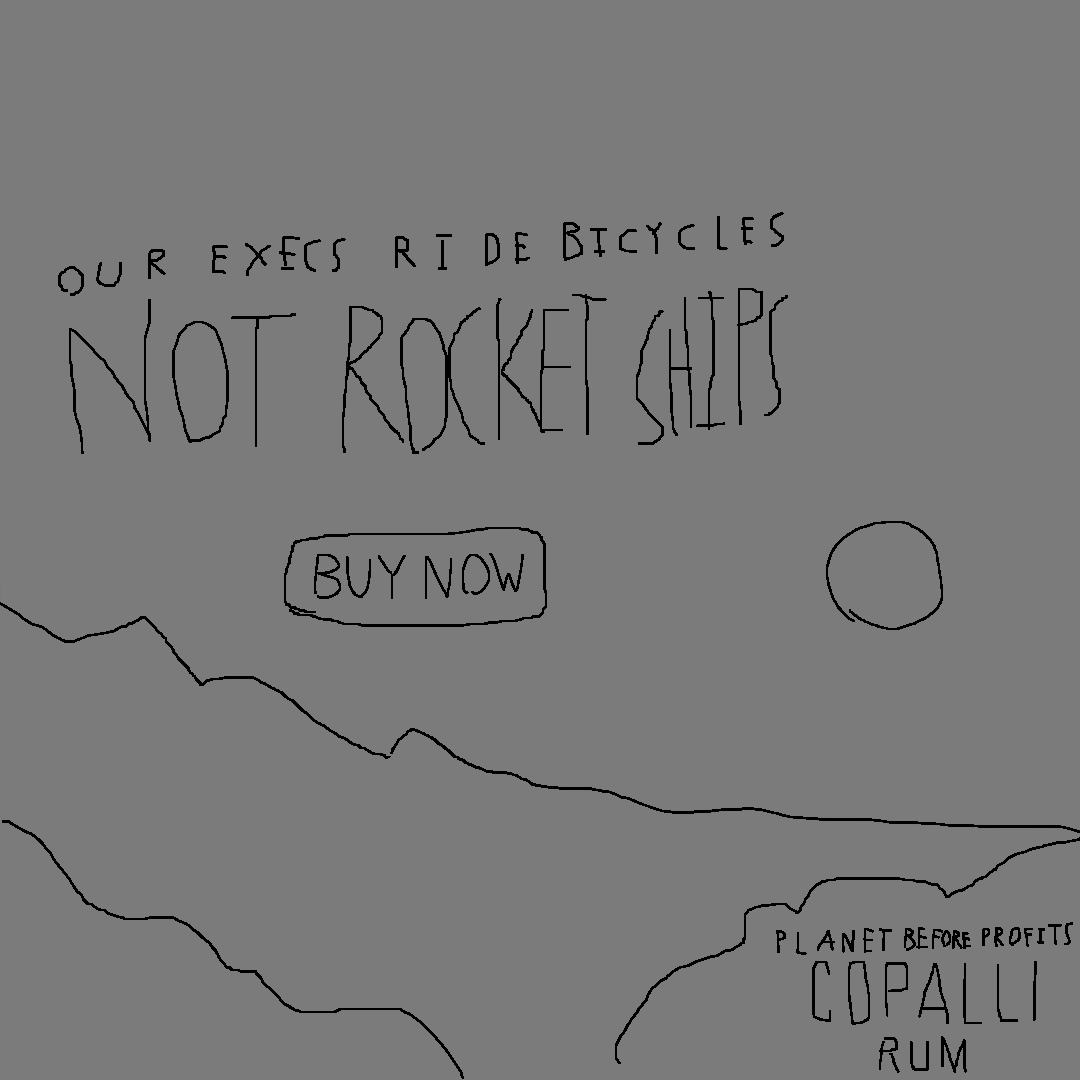 OUR EXECS RIDE BICYCLES
NOT ROCKET SHIPS
BUY NOW
PLANET BEFORE PROFITS
COPALLI
RUM